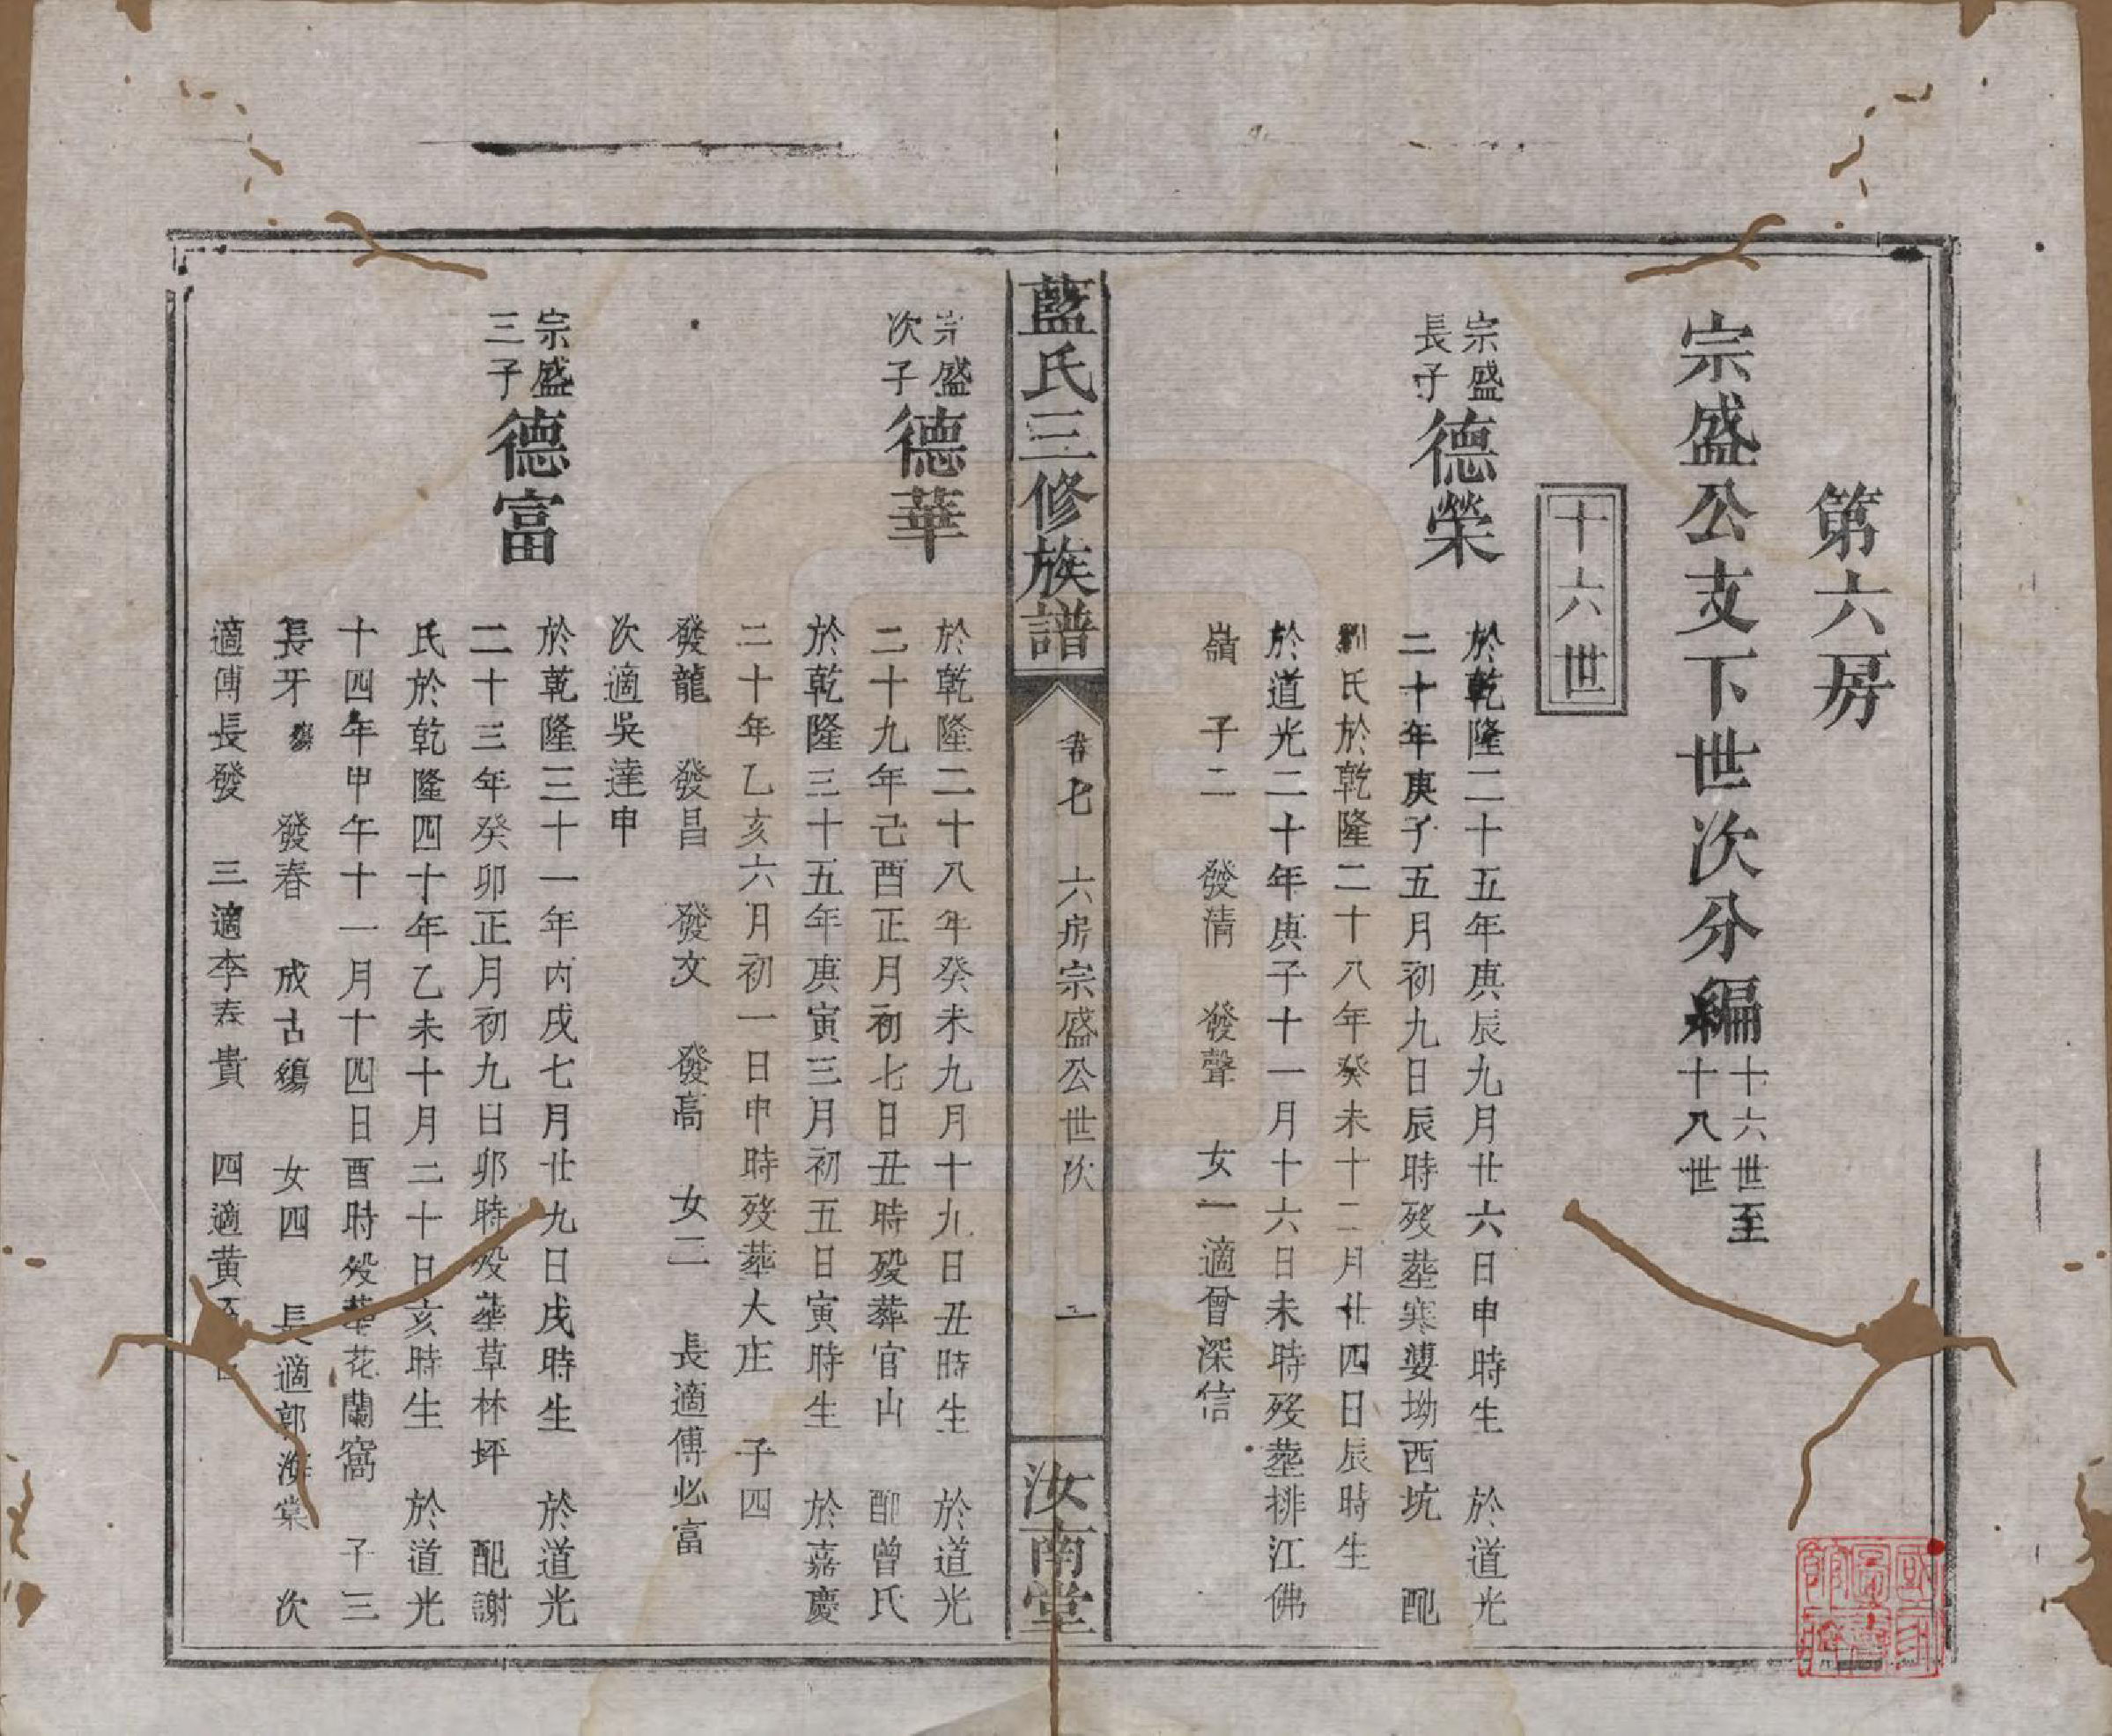 第六房
宗盛公支下世次分編十六世至十八世
十六世
宗盛長子德榮
於乾隆二十五年庚辰九月廿六日申時生 於道光
二十年庚子五月初九日辰時歿塟寒婆坳西坑 配
劉氏於乾隆二十八年癸未十二月廿四日辰時生
於道光二十年庚子十一月十六日未時歿塟排江佛
嶺 子二 發清 發聲 女一適曾深信
藍氏三修族譜
卷七 六房宗盛公世次 一
汝南堂
宗盛次子德華
於乾隆二十八年癸未九月十九日丑時生 於道光
二十九年己酉正月初七日丑時歿葬官山 配曾氏
於乾隆三十五年庚寅三月初五日寅時生 於嘉慶
二十年乙亥六月初一日申時歿葬大庄 子四
發龍 發昌 發文 發高 女二 長適傅必富
次適吳達申
宗盛三子德富
於乾隆三十一年丙戌七月廿九日戌時生 於道光
二十三年癸卯正月初九日卯時歿塟草林坪 配謝
氏於乾隆四十年乙未十月二十日亥時生 於道光
十四年甲午十一月十四日酉時歿塟花蘭窩 子三
長牙殤 發春 成古殤 女四 長適郭海棠 次
適傅長發 三適李春貴 四適黄
國家圖書館藏